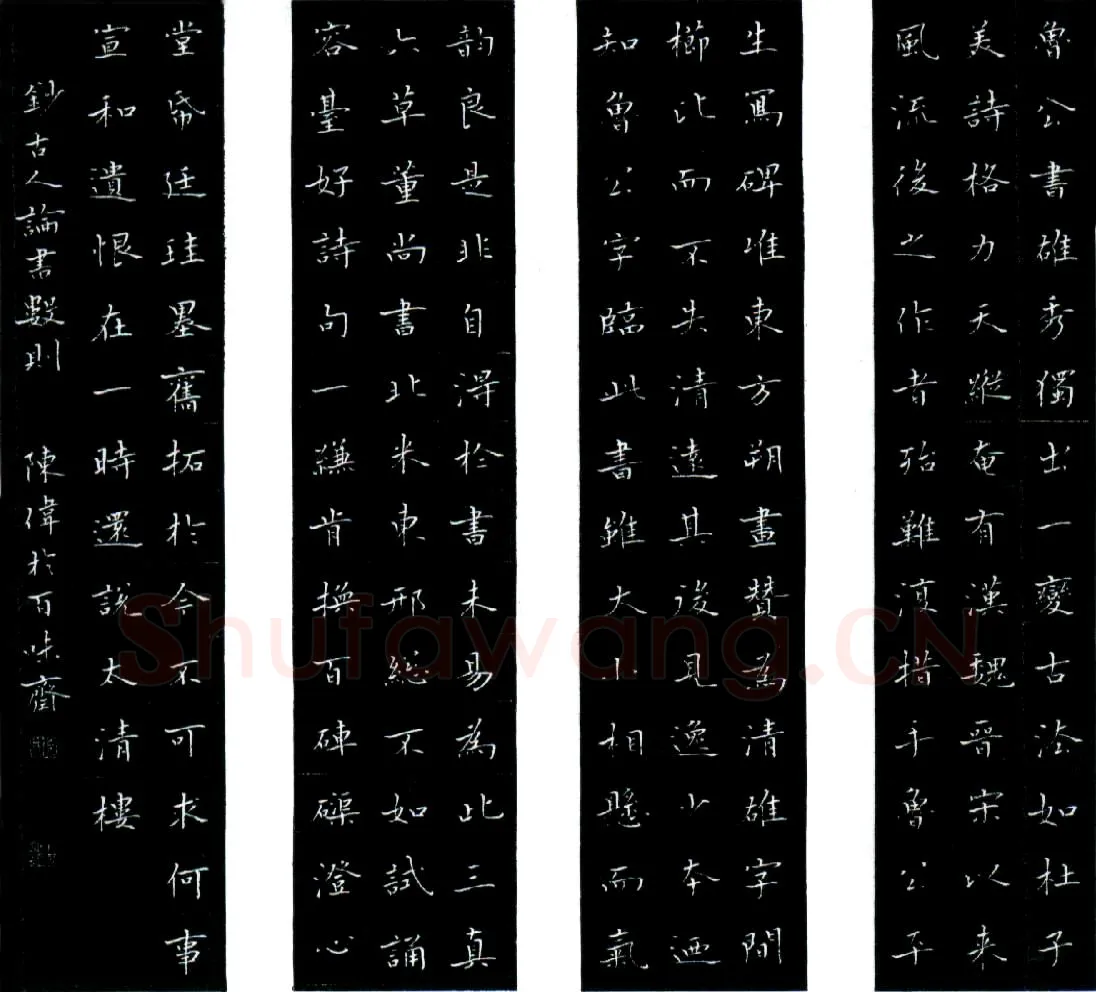 魯公書雄秀獨出一變古法如杜子
美詩格力天縱奄有漢魏晉宋以来
風流後之作者殆難復措手魯公平
生寫碑唯東方朔畫贊為清雄字間
櫛比而不失清遠其後見逸少本迺
知魯公字臨此書雖大小相懸而氣
韵良是非自得於書未易為此三真
六草董尚書北米東邢総不如試誦
容臺好詩句一縑肯換百硨磲澄心
堂帋廷珪墨舊拓於今不可求何事
宣和遺恨在一時還說太清樓
鈔古人論書數則 陳偉於百味齋
Shufawang.CN